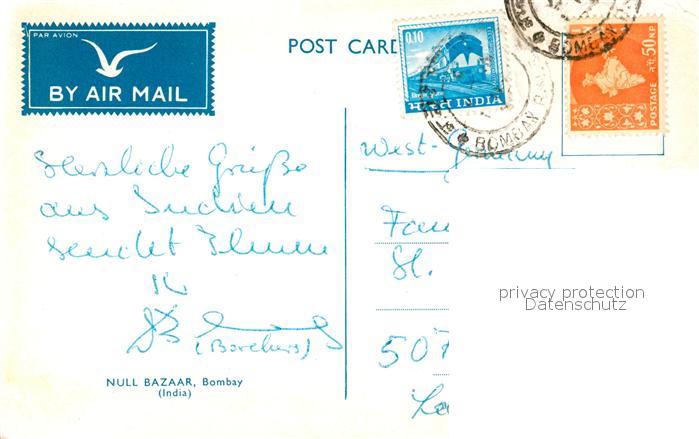 PAR AVION
BY AIR MAIL
POST CARD
0.10
भारत INDIA
BOMBAY
BOMBAY
50 N.P.
न.पै.
POSTAGE
Herzliche Grüße
aus Indien
sendet Ihnen
Ihr
(Borchers)
NULL BAZAAR, Bombay
(India)
West-Germany
Fam
St.
507
privacy protection
Datenschutz